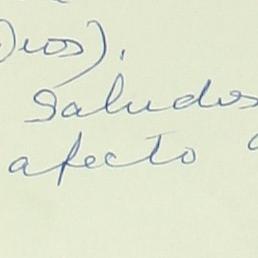 Dios).
Saludos
afecto